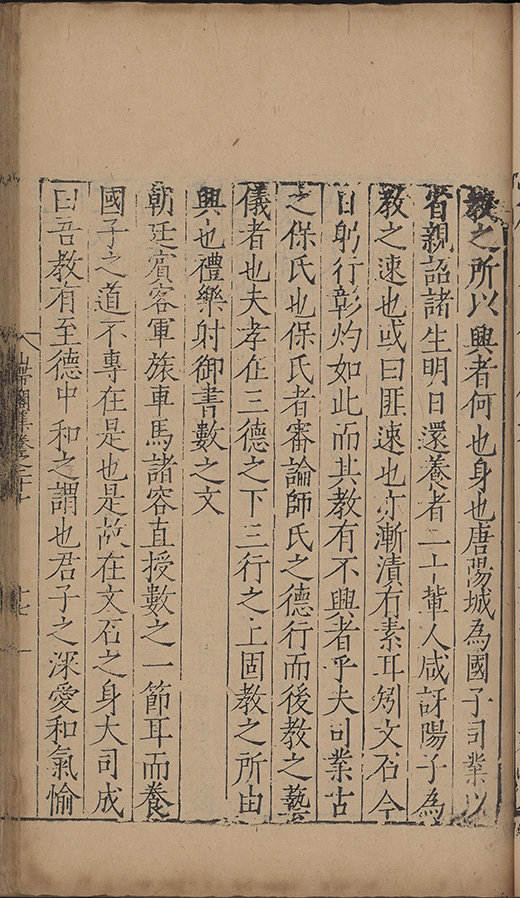 教之所以興者何也身也唐陽城為國子司業以
省親詔諸生明日還養者二十輩人咸訝陽子為
教之速也或曰匪速也亦漸漬有素耳矧文石今
日躬行彰灼如此而其教有不興者乎夫司業古
之保氏也保氏者審論師氏之德行而後教之藝
儀者也夫孝在三德之下三行之上固教之所由
興也禮樂射御書數之文
朝廷賓客軍旅車馬諸容直授數之一節耳而養
國子之道不專在是也是故在文石之身大司成
曰吾教有至德中和之謂也君子之深愛和氣愉
山帶閣集卷之二十七
十七